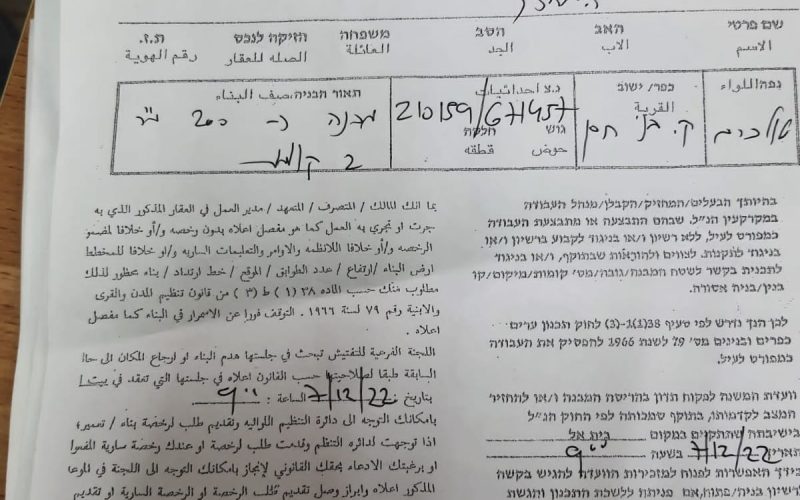 שם פרטי האב הסב משפחה הזיקה לנכס ת.ז.
الاسم الاب الجد العائلة الصله للعقار رقم الهوية
נפה/اللواء כפר/ ישוב נ.צ احداثيات תאור הבניה.صيف البناء
القرية 210159/671457 מבנה כ- 200 מ"ר
טול כרם גוש חלקה
حوض قطعه
2 קומות
بما انك المالك / المتصرف / المتعهد / مدير العمل في العقار المذكور الذي به
جرت او تجري به العمل كما هو مفصل اعلاه بدون رخصه و/أو خلافا لمضمو
الرخصه و/أو خلافا للانظمه والاوامر والتعليمات الساريه و/او خلافا للمخطط
ارض البناء /ارتفاع / عدد الطوابق / الموقع / خط ارتداد / بناء محظور لذلك
مطلوب منك حسب الماده ٣٨ (١) ط (٣) من قانون تنظيم المدن والقرى
والابنية رقم ٧٩ لسنة ١٩٦٦ . التوقف فورا عن الاستمرار في البناء كما مفصل
اعلاه .
اللجنة الفرعية للتفتيش تبحث في جلستها هدم البناء او ارجاع المكان الى حا
السابقة طبقا لصلاحيتها حسب القانون اعلاه في جلستها التي تعقد في بيت ا
بتاريخ 7/12/22 الساعة : 9:00
بامكانك التوجه الى دائرة التنظيم اللوائيه وتقديم طلب لرخصة بناء / تعمير؛
اذا توجهت لدائره التنظم وقدمت طلب لرخصة او عندك رخصة سارية المفعوا
او برغبتك الادعاء بحقك القانوني لإنجاز بامكانك التوجه الى اللجنة في الموعا
المذكور اعلاه وابراز وصل تقديم طلب الرخصة او الرخصة السارية او تقديم
בהיותך הבעלים/המחזיק/הקבלן/מנהל העבודה
במקרקעין הנ"ל. שבהם התבצעה או מתבצעת העבודה
כמפורט לעיל, ללא רשיון ו/או בניגוד לקבוע ברשיון ו/או
בניגוד לתקנות. לצווים ולהוראות שבתוקף, ו/או בניגוד
לתכנית בקשר לשטח המבנה/גובה/מס' קומות/מיקום/קו
בנין/בניה אסורה.
לכן הנך נדרש לפי סעיף 38(1)-(3) לחוק תכנון ערים
כפרים ובנינים מס' 79 לשנת 1966 להפסיק את העבודה
כמפורט לעיל.
וועדת המשנה לפקוח תדון בהריסת המבנה ו/או להחזיר
המצב לקדמותו, בתוקף סמכותה לפי החוק הנ"ל
בישיבתה שתתקיים במקום בית אל
תאריך 7/12/22 בשעה 9:00
בידך האפשרות לפנות למזכירות הוועדה להגיש בקשה